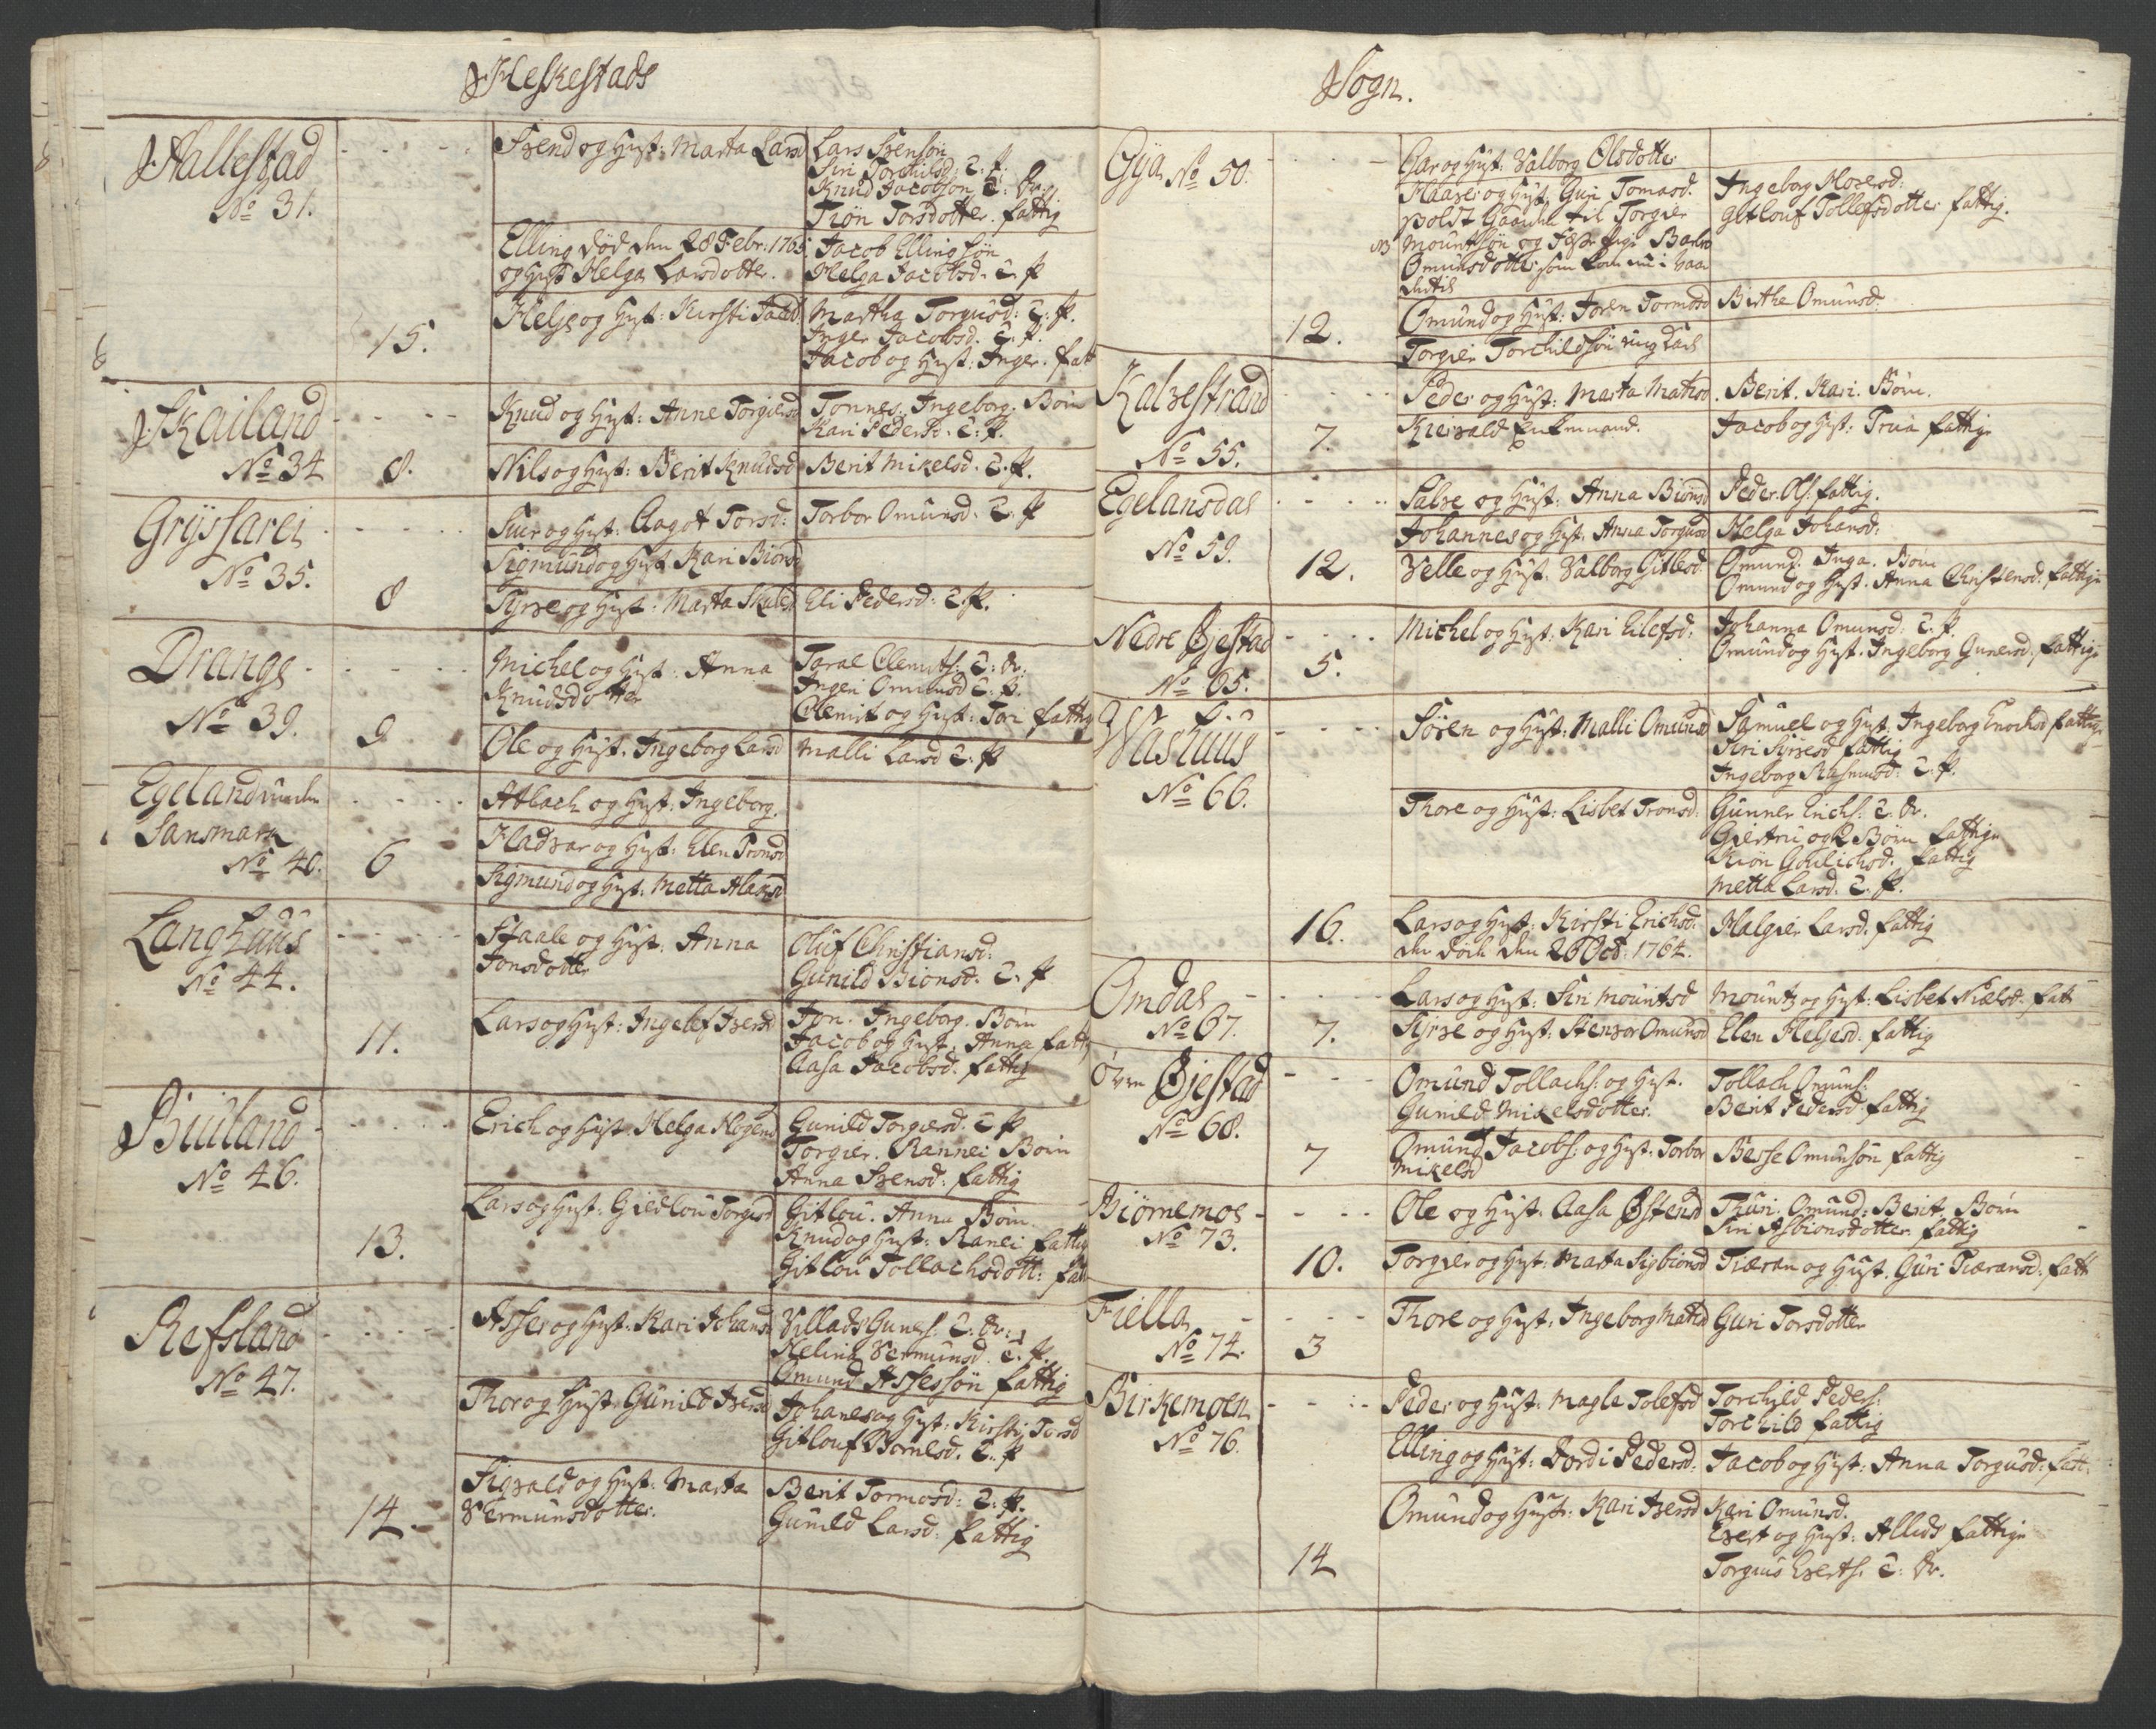 Heskestads
Hallestad
No 31.
15.
Svend og Hust: Marta Larsd
Lars Svensön
Siri Torchilsd. T: P:
Knud Jacobsön T: Dr:
Tiön Torsdotter. fattig
Elling död den 28 Febr: 1765
og Hust Helga Larsdotter.
Jacob Ellingsön
Helga Jacobsd. T: P
Helje og Hust: Kirsti
Martha Torgusd: T: P.
Inger Jacobsd. T: P.
Jacob og Hust: Inger. fatt
Skailand
No 34
8.
Knud og Hust: Anne Torgiersd
Tonnes. Ingeborg. Börn
Kari Pedersd. T: P.
Nils og Hust: Berit Knudsd
Berit Mikelsd. T: P.
Gryssarei
No 35.
8
Siur og Hust: Aagot Torsd:
Torbor Omunsd. T: P
Sigmund og Hust Kari Biörnsd
Syrse og Hust: Marta
Eli Pedersd: T: P.
Drangs
No 39.
9
Michel og Hust: Anna
Knudsdotter
Taral Clemits: T: Dr:
Ingeri Omunsd T: P.
Clemit og Hust: Tori fattig
Ole og Hust. Ingeborg Larsd
Malli Larsd T: P
Egeland
Sansmark
No 40.
6
Ablach og Hust: Ingeborg.
Hadvar og Hust: Elen Tronsd
Sigmund og Hust: Metta
Langhuus
No 44.
11.
Staale og Hust: Anna
Jonsdotter
Oluf Christiansd:
Gunild Bionsd. T: P
Lars og Hust: Ingelef Iversd
Jon. Ingeborg. Börn
Jacob og Hust. Anna fatt
Aasa Jacobsd. fattig
Biuland
No 46.
13.
Erich og Hust. Helga
Gunild Torgiersd. T P
Torgier. Rannei Börn
Anna Svensd: fattig
Lars og Hust: Gietlou Torgiersd
Gitlou. Anna Börn.
Knud og Hust: Ranei fattig
Gitlou Tollachsdott: fatt
Refsland
No 47.
14.
Asser og Hust. Kari Johansd
Villads Guners: T: Dr:
Helina Vermunsd. T. P.
Omund Assersön fattig
Thor og Hust. Gunild Iversd
Johanes og Hust: Kirsti Torsd
Gitlouf Tornlsd. T: P
Sigvald og Hust: Marta
Vermunsdotter.
Berit Tormosd: T: P.
Gunild Larsd: fattig
Sogn.
Gya No 50.
12.
Gar og Hust: Valborg Olsdotter
Haaver og Hust. Guri Tomasd.
Torgier
NB Mountsön og
Omunsdotter som
Ingeborg Mosesd:
Gitlouf Tollefsdotter fattig.
Omund og Hust: Joren Tormosd
Birthe Omunsd.
Torgier Torchildsön
Kalvestrand
No 55.
7.
Peder og Hust: Marta Matisd
Berit. Kari. Börn.
Kiervald Enkemand.
Jacob og Hust: Trua fattig
Egelansdal
No 59.
12.
Salve og Hust: Anna Biönsd
Peder Ols: fattig.
Johannes og Hust. Anna Torgiersd
Helga Johansd:
Velle og Hust: Valborg Gitlesd
Omund. Inga. Börn
Omund og Hust. Anna Christensd. fattig
Nedre Øjestad
No 65.
5.
Michel og Hust: Kari Eilefsd:
Johanna Omunsd: T: P.
Omund og Hust. Ingeborg Gunersd. fattig
Washuus
No 66.
16.
Sören og Hust: Malli Omunsd
Samuel og Hust: Ingeborg Enochsd fattig
Siri Syrsesd fattig
Ingeborg Rasmusd: T: P.
Thore og Hust: Lisbet Tronsd:
Gunner Erichs: T: Dr.
Giertru og 2 Börn fattig
Kiön Goulichsd. fattig
Metta Larsd: T: P.
Lars og Hust: Kirsti Erichsd:
der döde den 26 Oct: 1764.
Malgier Larsd. fattig
Omdal
No 67.
7.
Lars og Hust: Siri Mountsd
Mounts og Hust: Lisbet Nielsd. fatt
Syrse og Hust: Stensor Omunsd
Elen Heljesd. fattig
Övre Øjestad
No 68.
7
Omund Tollachs: og Hust.
Gunild Mikelsdotter.
Tollach Omuns:
Berit Pedersd fattig
Omund Jacobs: og Hust: Torbor
Mikelsd
Besse Omunsön fattig
Biörnemos
No 73.
10.
Ole og Hust: Aasa Østensd
Thuri. Omund. Berit. Börn
Siri Asbionsdotter fattig
Torgier og Hust: Marta Sigbionsd
Tiæran og Hust. Guri Tiæransd. fatt
Fiella
No 74.
3
Thore og Hust: Ingeborg Matisd
Guri Torsdotter
Birkemoen
No 76.
14
Peder og Hust: Magle Tolefsd
Torchild Peders:
Torchild fattig
Elling og Hust: Jordi Pedersd.
Jacob og Hust: Anna Torgusd: fatt:
Omund og Hust: Kari Iversd
Kari Omunsd.
Evert og Hust: Alleds fattig
Torgius Everts. T: Dr.